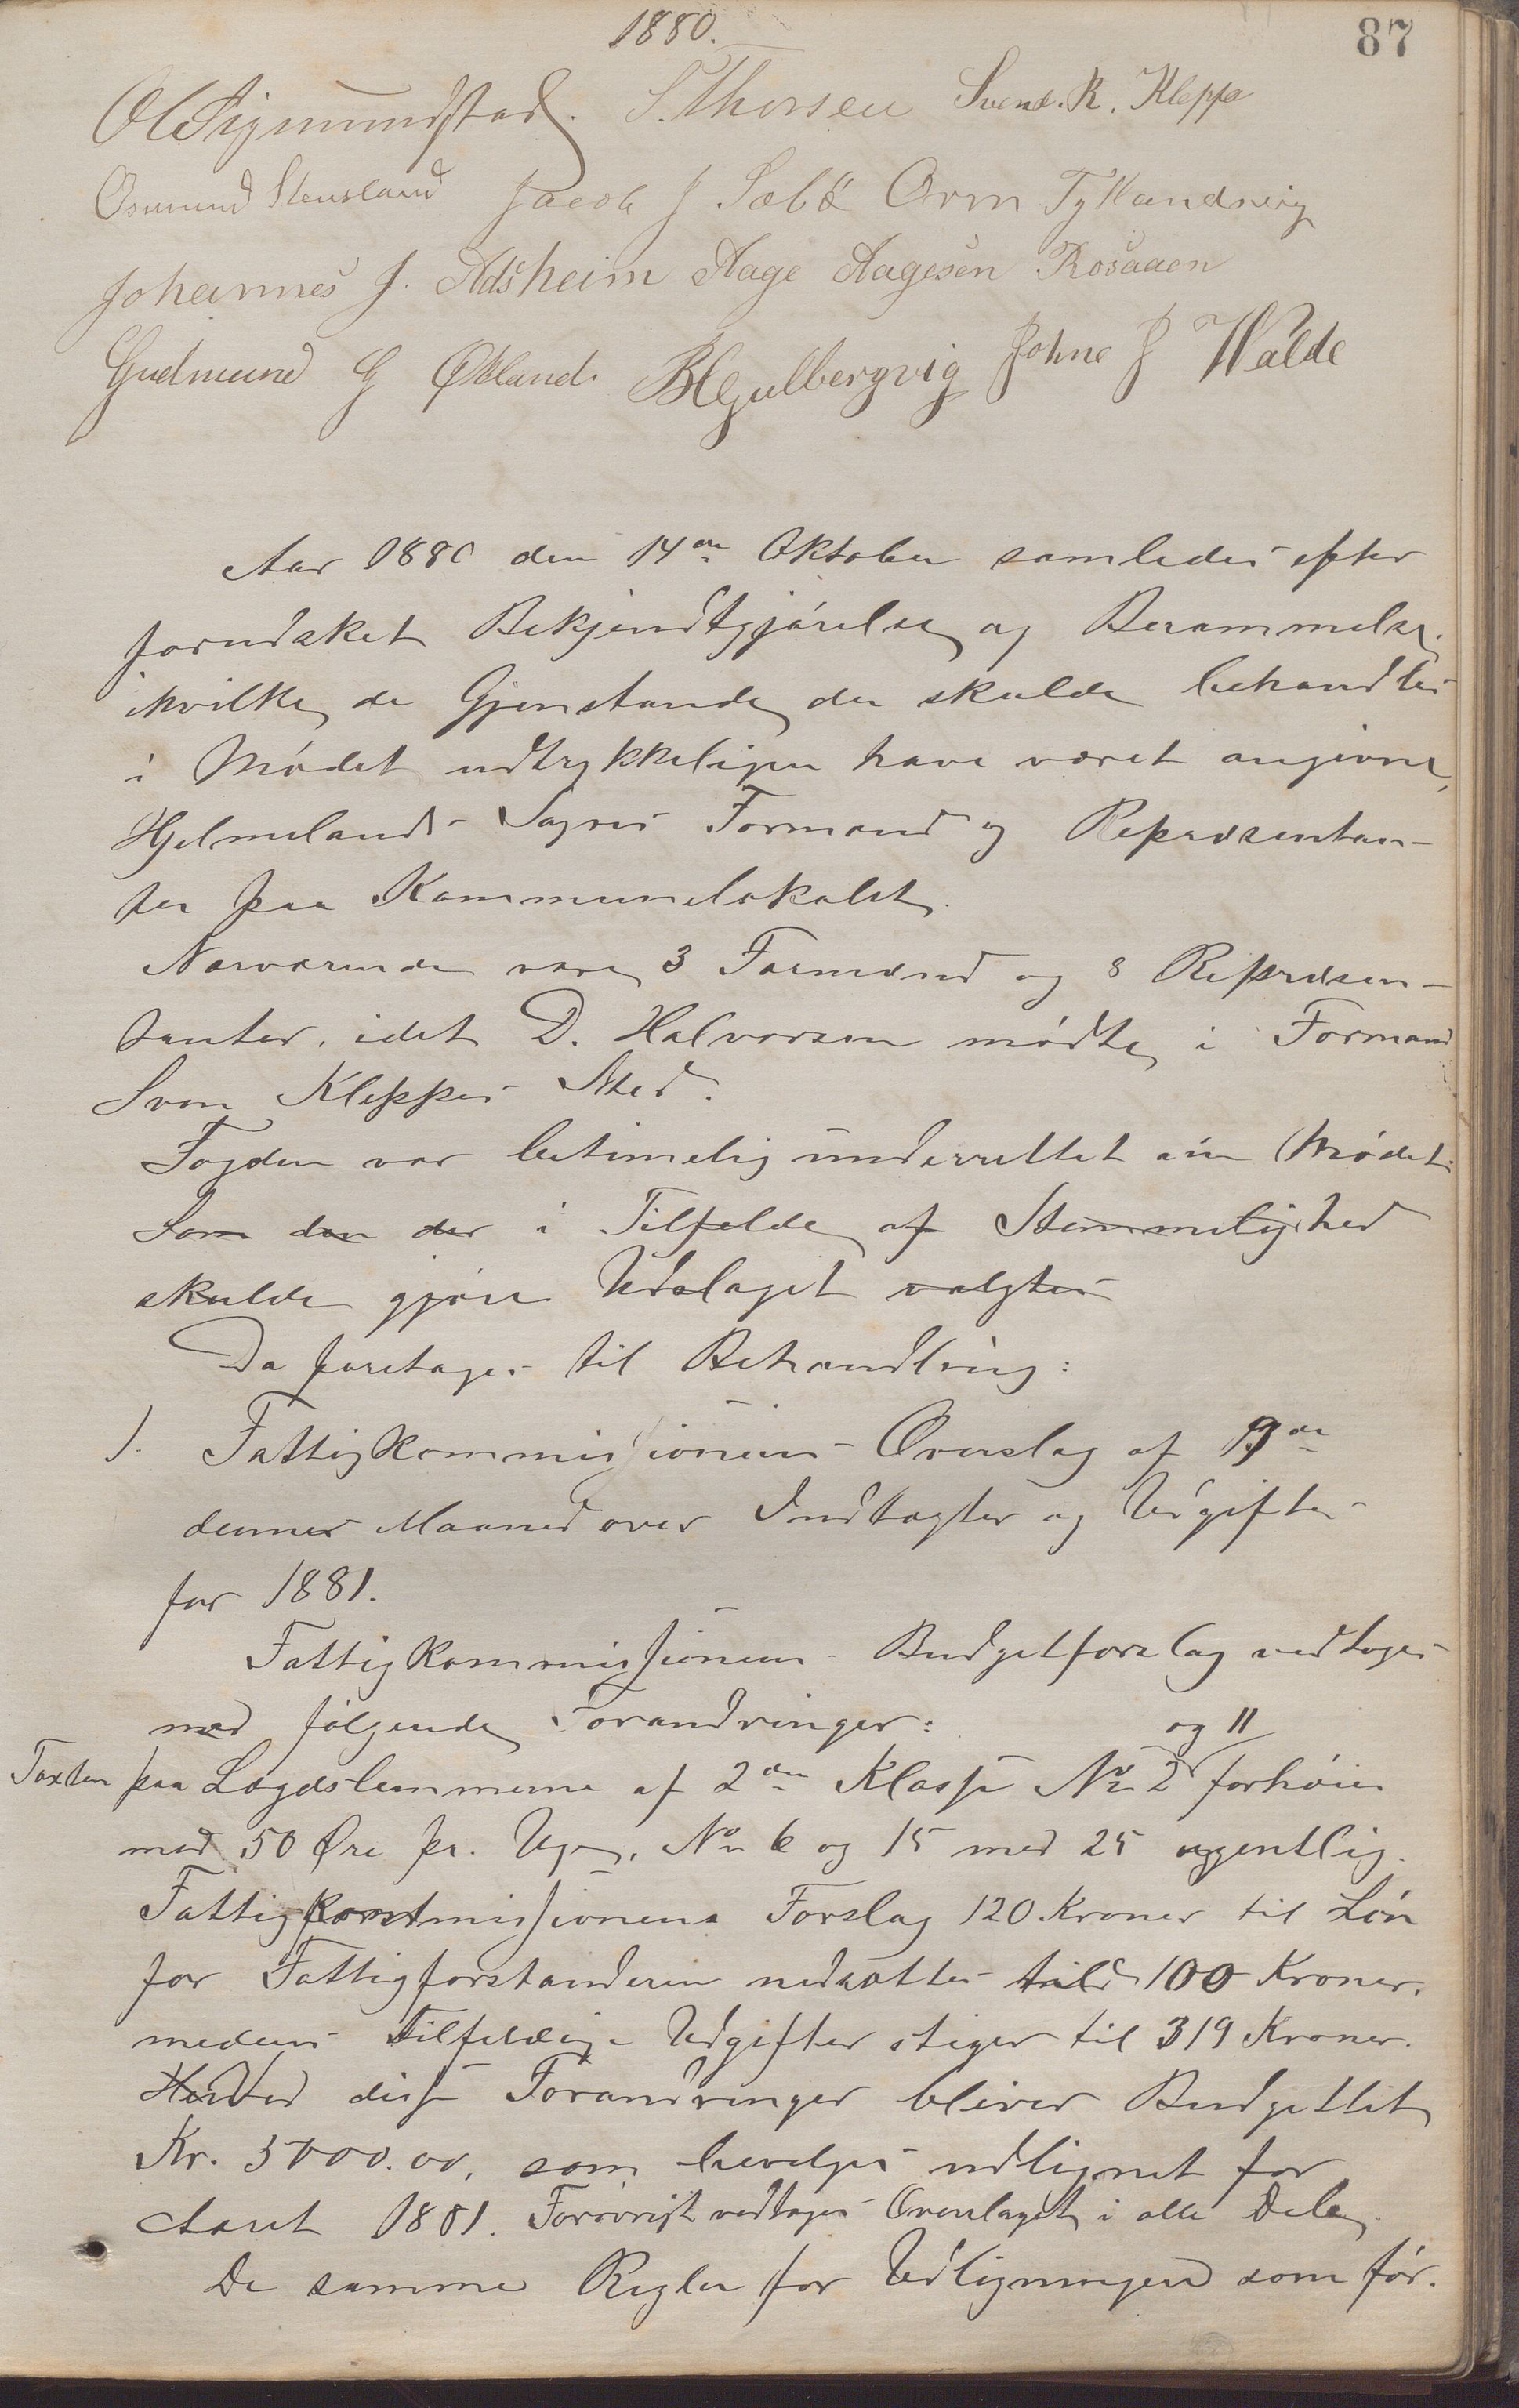 1880.
87
O Sigmundstad. S. Thorsen Svend. R. Kleppa
Osmund Stensland Jacob J Sæbö Orm Tytlandsvig
Johannes J. Adsheim Aage Aagesen Rosaaen
Gudmund G Økland. B Gulbergvig Johne J Walde
Aar 1880 den 14de Oktober samledes efter
forudsket Bekjendtgjórelse og Berammelse,
i hvilke de Gjenstande der skulde behandles
i Mødet udtrykkeligen have været angivne,
Hjelmelands Sogns Formænd og Repræsentan-
ter paa Kommunelokalet.
Nærværende vare 3 Formænd og 8 Repræsen-
tanter, idet D. Halvorsen mødte i Formand
Sven Kleppes Sted.
Fogden var betimelig underrettet om Mødet.
Som den der i Tilfelde af Stemmelighed
skulde gjøre Udslaget valgtes
Da foretoges til Behandling:
1. Fattigkommissionens Overslag af 13de
dennes Maaned over Indtægter og Udgifter
for 1881.
Fattigkommissionens Budgetforslag vedtoges
med følgende Forandringer:
og 11
Taxten paa Lægdslemmerne af 2den Klasse No 2 forhøies
med 50 Øre pr. Uge, No 6 og 15 med 25 ugentlig.
Fattigkommissionens Forslag 120 Kroner til Løn
for Fattigforstanderen nedsættes til 100 Kroner,
medens tilfeldige Udgifter stiger til 319 Kroner.
Ved disse Forandringer bliver Budgettet
Kr. 5000.00, som bevilges udlignet for
Aaret 1881. Forøvrigt vedtoges Overslaget i alle Dele.
De samme Regler for Udligningen som før.